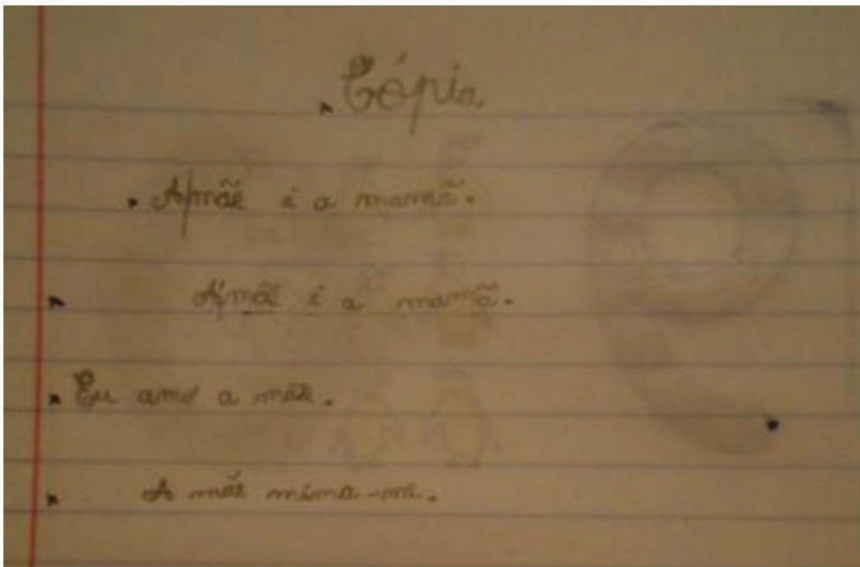 Cópia
A mãe é a mamã.
A mãe é a mamã.
Eu amo a mãe.
A mãe mima-me.